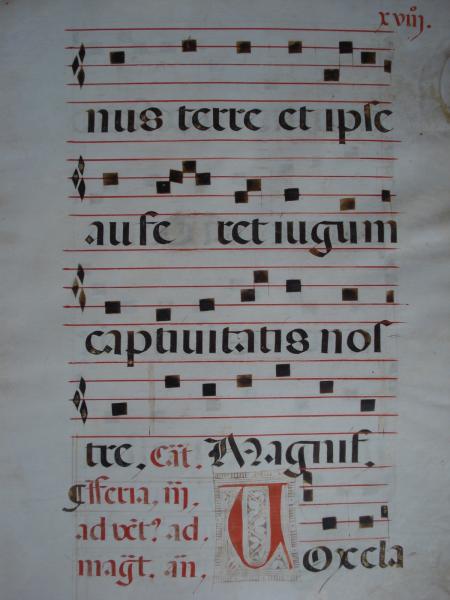 xviij.
nus terre et ipse
aufe ret iugum
captiuitatis nos
tre. cāt. Magnif.
¶ feria. iij.
ad vēt? ad.
mag̃t. añ.
Uoxcla